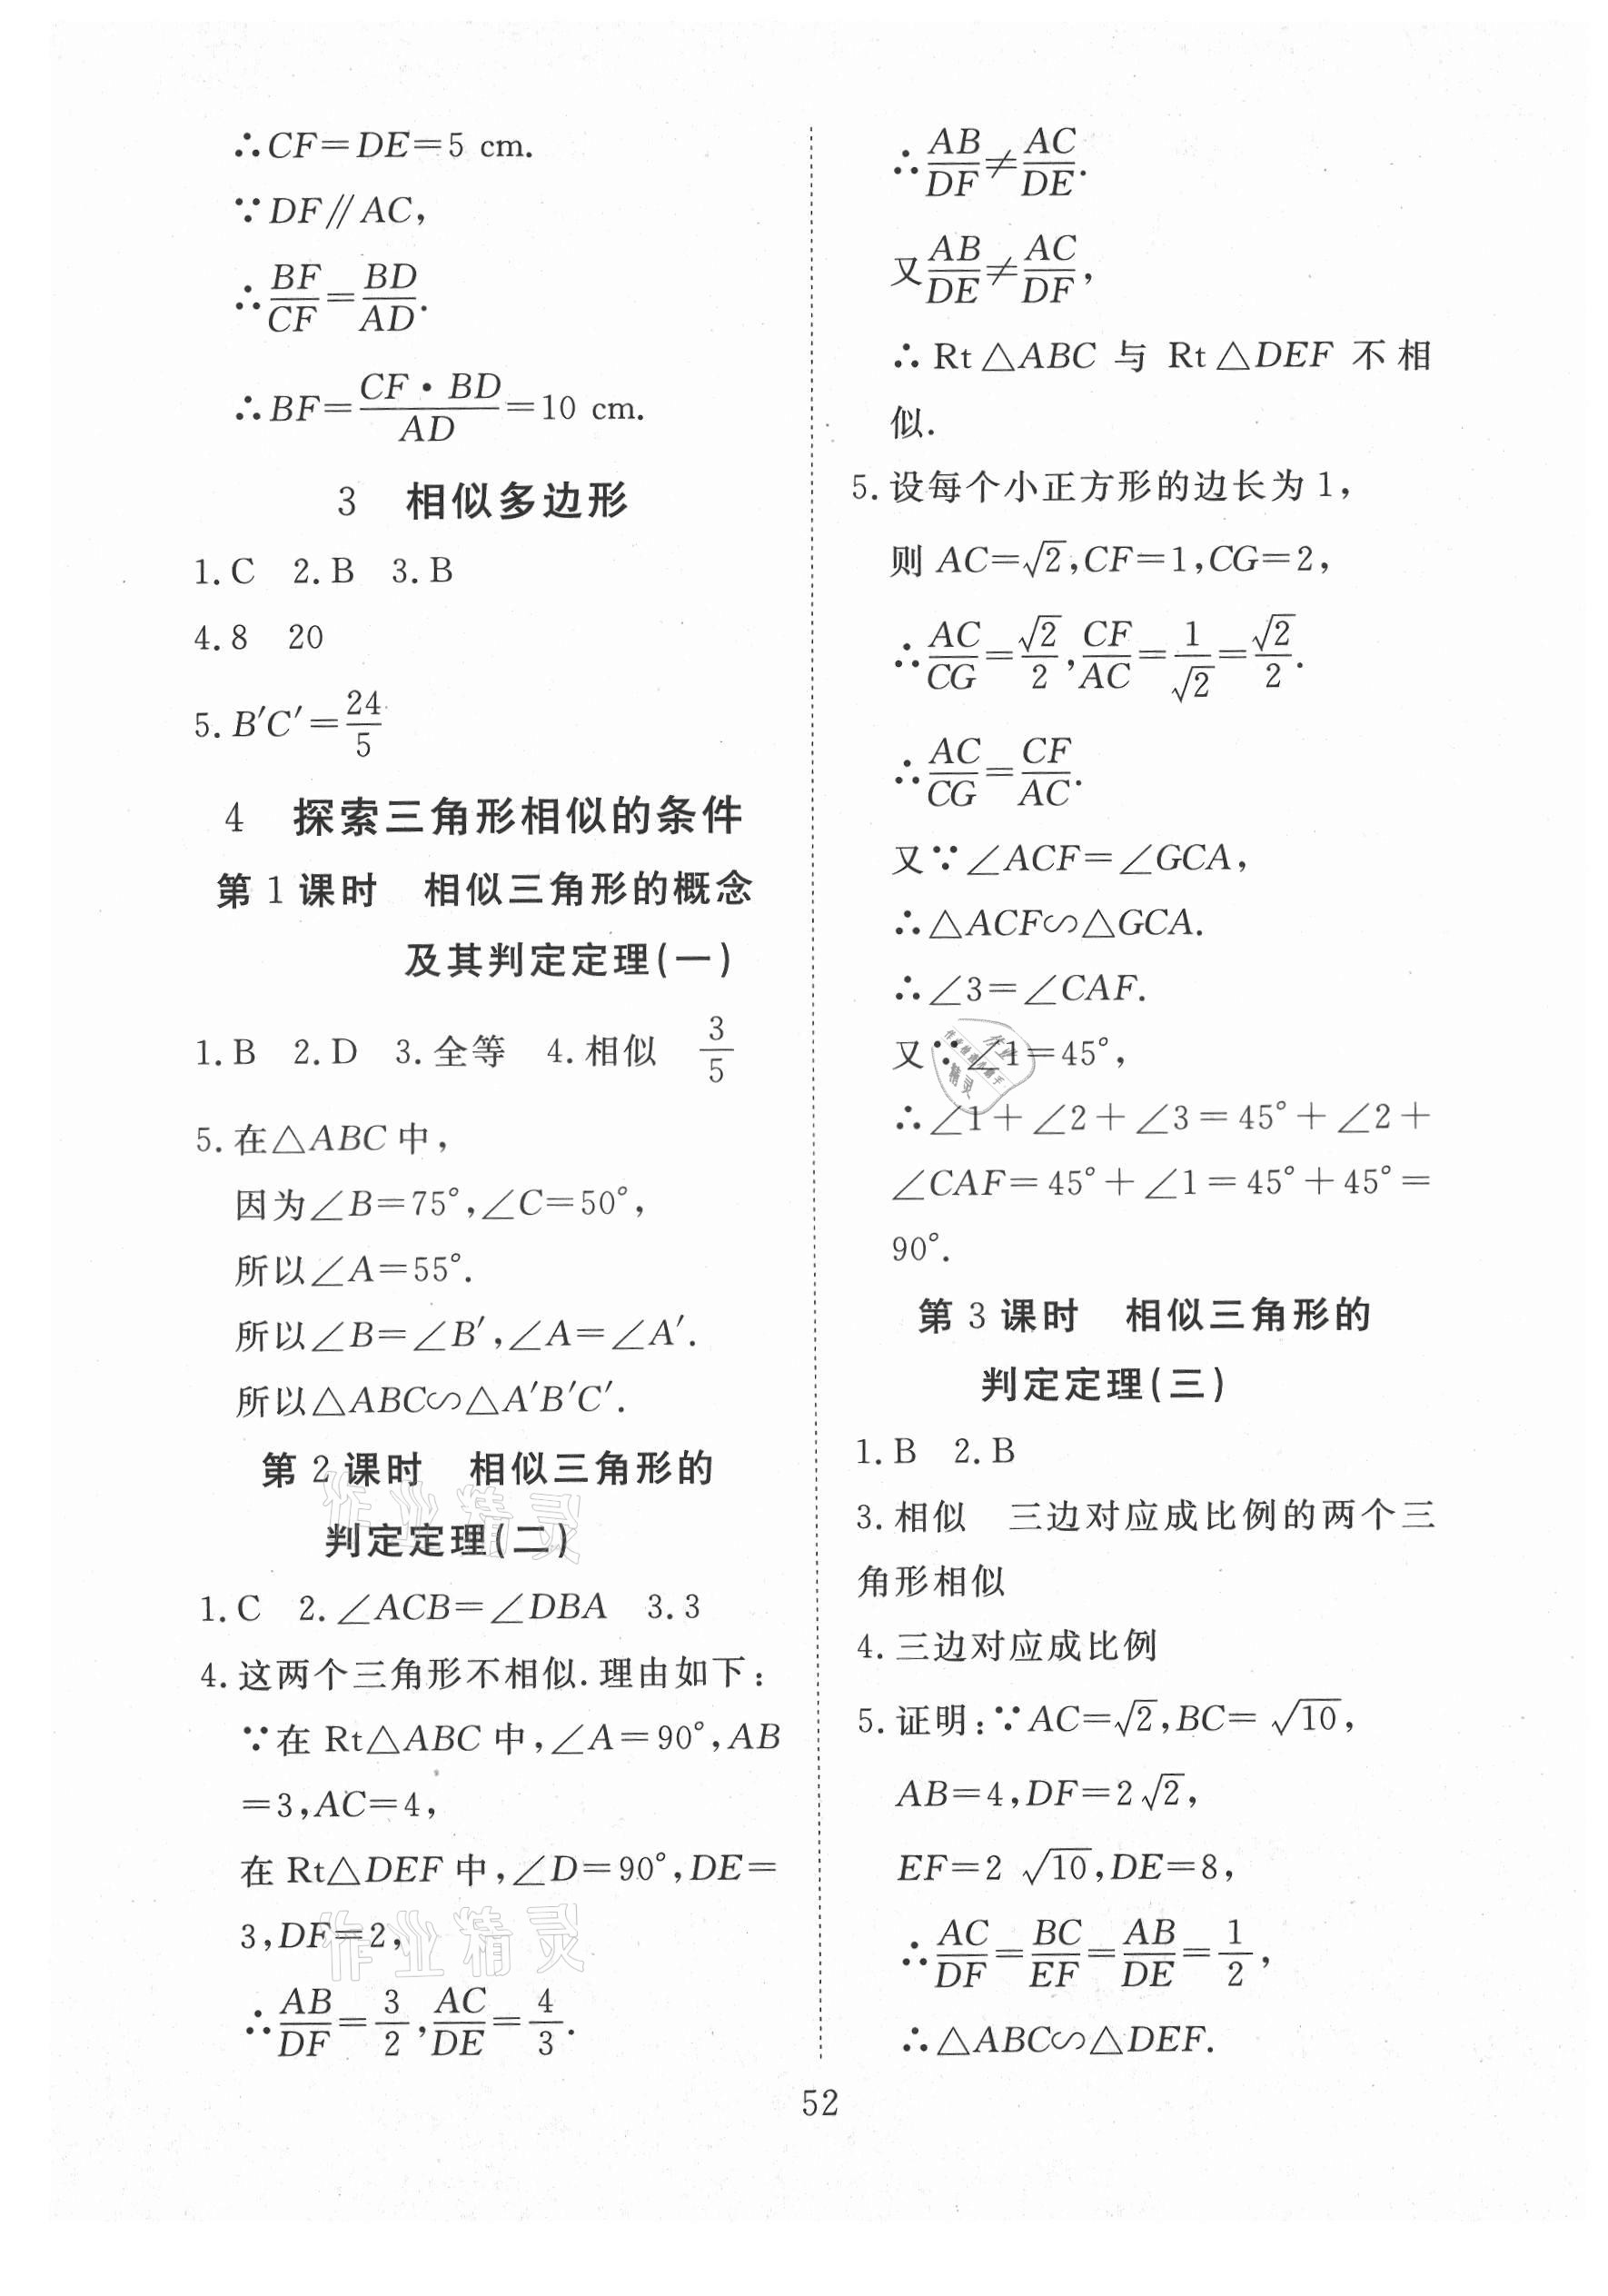 ∴CF=DE=5 cm.
∵DF∥AC,
∴BF/CF=BD/AD.
∴BF=CF·BD/AD=10 cm.
3 相似多边形
1.C 2.B 3.B
4.8 20
5.B′C′=24/5
4 探索三角形相似的条件
第1课时 相似三角形的概念
及其判定定理(一)
1.B 2.D 3.全等 4.相似 3/5
5.在△ABC中,
因为∠B=75°,∠C=50°,
所以∠A=55°.
所以∠B=∠B′,∠A=∠A′.
所以△ABC∽△A′B′C′.
第2课时 相似三角形的
判定定理(二)
1.C 2.∠ACB=∠DBA 3.3
4.这两个三角形不相似.理由如下:
∵在 Rt△ABC 中,∠A=90°,AB
=3,AC=4,
在 Rt△DEF 中,∠D=90°,DE=
3,DF=2,
∴AB/DF=3/2,AC/DE=4/3.
∴AB/DF≠AC/DE.
又AB/DE≠AC/DF,
∴ Rt△ABC 与 Rt△DEF 不相
似.
5.设每个小正方形的边长为1,
则 AC=√2,CF=1,CG=2,
∴AC/CG=√2/2,CF/AC=1/√2=√2/2.
∴AC/CG=CF/AC.
又∵∠ACF=∠GCA,
∴△ACF∽△GCA.
∴∠3=∠CAF.
又∵∠1=45°,
∴∠1+∠2+∠3=45°+∠2+
∠CAF=45°+∠1=45°+45°=
90°.
第3课时 相似三角形的
判定定理(三)
1.B 2.B
3.相似 三边对应成比例的两个三
角形相似
4.三边对应成比例
5.证明:∵AC=√2,BC=√10,
AB=4,DF=2√2,
EF=2√10,DE=8,
∴AC/DF=BC/EF=AB/DE=1/2,
∴△ABC∽△DEF.
52
作业精灵
作业精灵
作业
精灵